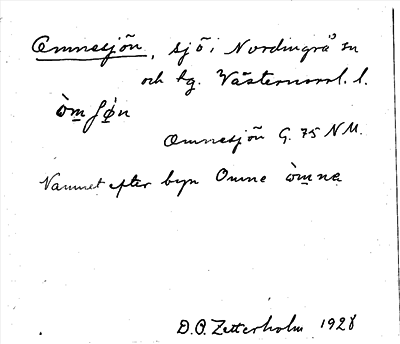 Omnesjön, sjö i Nordingrå sn
och tg. Västernorrl. l.
òm̲ʃø̀n
Omnesjön G. 75 N M.
Namnet efter byn Omne òm̲na
D.O. Zetterholm 1928